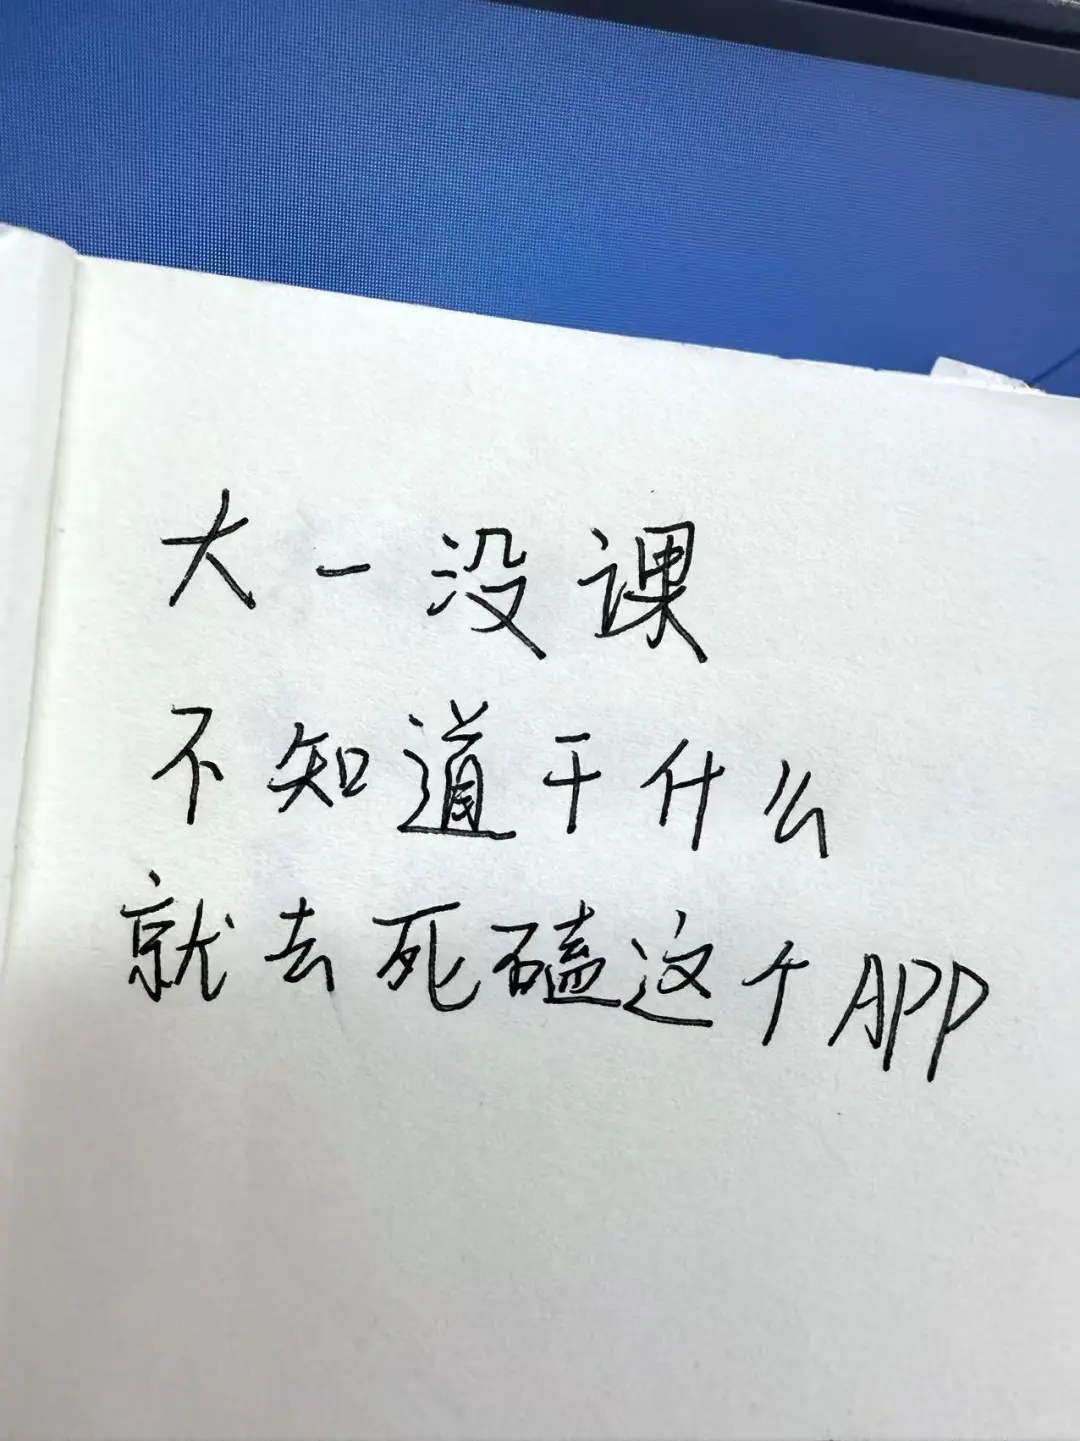 大一没课
不知道干什么
就去死磕这个APP